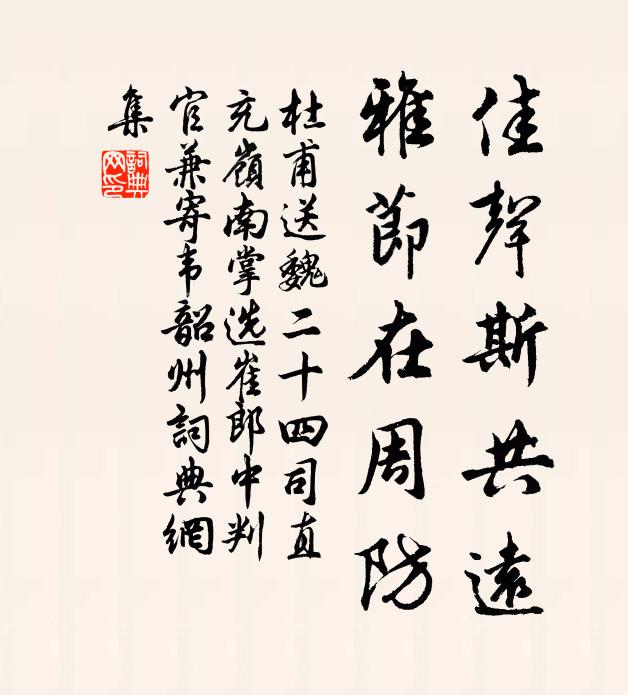 佳聲斯共遠
雅節在周防
杜甫送魏二十四司直
充嶺南掌选崔郎中判
官兼寄韦韶州詞典網
集
詞典
网印